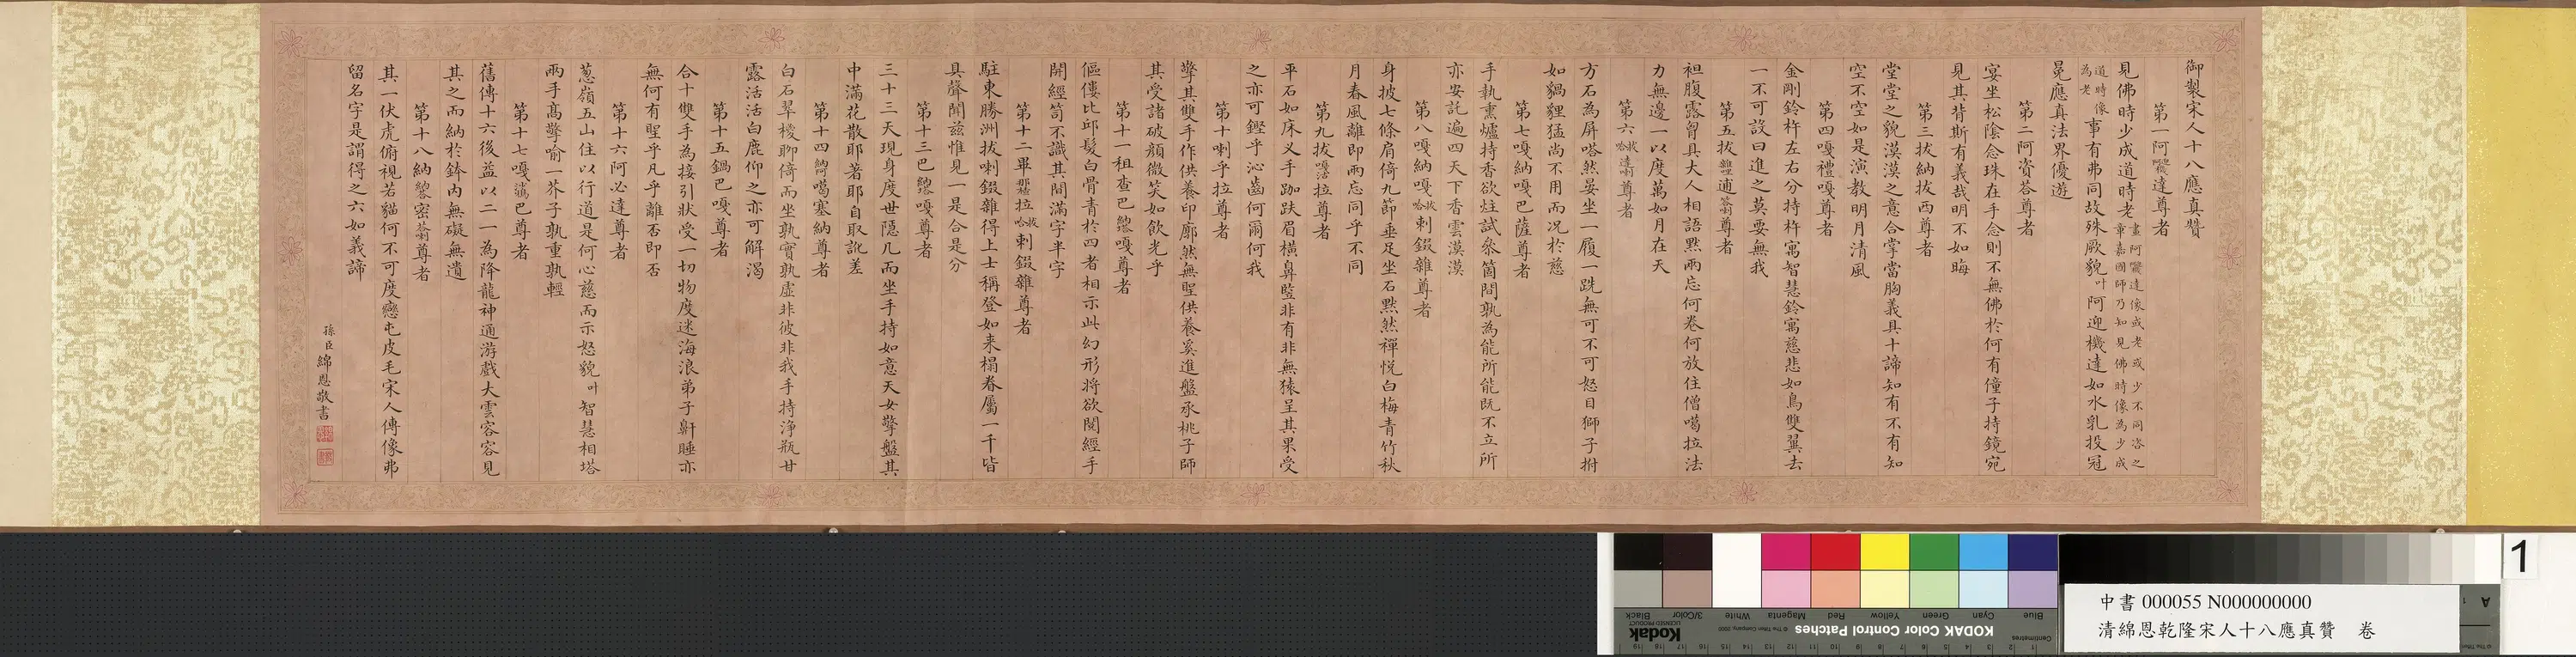 御製宋人十八應真贊
第一阿迎達尊者
見佛時少成道時老畫阿迎達像或老或少不同咨之章嘉國師乃知見佛時像為少成
道時像為老事有弗同故殊厥貌叶阿迎機達如水乳投冠
冕應真法界優遊
第二阿資荅尊者
宴坐松陰念珠在手念則不無佛於何有僮子持鏡宛
見其背斯有義哉明不如晦
第三拔納拔西尊者
堂堂之貌漠漠之意合掌當胸義具十諦知有不有知
空不空如是演教明月清風
第四嘎禮嘎尊者
金剛鈴杵左右分持杵寓智慧鈴寓慈悲如鳥雙翼去
一不可設曰進之莫要無我
第五拔雜逋荅喇尊者
袒腹露胷具大人相語默兩忘何卷何放住僧噶拉法
力無邊一以度萬如月在天
第六拔哈達喇尊者
方石為屏嗒然晏坐一履一跣無可不可怒目獅子拊
如貓貍猛尚不用而况於慈
第七嘎納嘎巴薩尊者
手執熏爐持香欲炷試叅箇間孰為能所能既不立所
亦安託遍四天下香雲漠漠
第八嘎納嘎拔哈剌錣雜尊者
身披七條肩倚九節垂足坐石黙然禪悅白梅青竹秋
月春風離即兩忘同乎不同
第九拔嘎沽拉尊者
平石如床义手跏趺眉橫鼻豎非有非無猿呈其果受
之亦可鏗乎沁齒何爾何我
第十喇乎拉尊者
擎其雙手作供養印廓然無聖供養奚進盤承桃子師
其受諸破顏微笑如飲光乎
第十一租查巴納塔嘎尊者
傴僂比邱髮白骨青於四者相示此幻形將欲閱經手
開經笥不識其間滿字半字
第十二畢那楂拉拔哈剌錣雜尊者
駐東勝洲拔喇錣雜得上士稱登如来榻眷屬一千皆
具聲聞茲惟見一是合是分
第十三巴納塔嘎尊者
三十三天現身度世隱几而坐手持如意天女擎盤其
中滿花散耶著耶自取訛差
第十四納阿噶塞納尊者
白石翠稜聊倚而坐孰實孰虛非彼非我手持淨瓶甘
露活活白鹿仰之亦可解渴
第十五鍋巴嘎尊者
合十雙手為接引狀受一切物度迷海浪弟子鼾睡亦
無何有聖乎凡乎離否即否
第十六阿必達尊者
葱嶺五山住以行道是何心慈而示怒貌叶智慧相塔
兩手髙擎喻一芥子孰重孰輕
第十七嘎沙鴉巴尊者
舊傳十六後益以二一為降龍神通游戲大雲容容見
其之而納於鉢内無礙無遺
第十八納納塔密荅喇尊者
其一伏虎俯視若貓何不可度戀屯皮毛宋人傳像弗
留名字是謂得之六如義諦
孫臣綿恩敬書
1
中書 000055 N000000000
清綿恩乾隆宋人十八應真贊 卷
KODAK Color Control Patches
Kodak
Blue Cyan Green Yellow Red Magenta White 3/Color Black
Centimetres